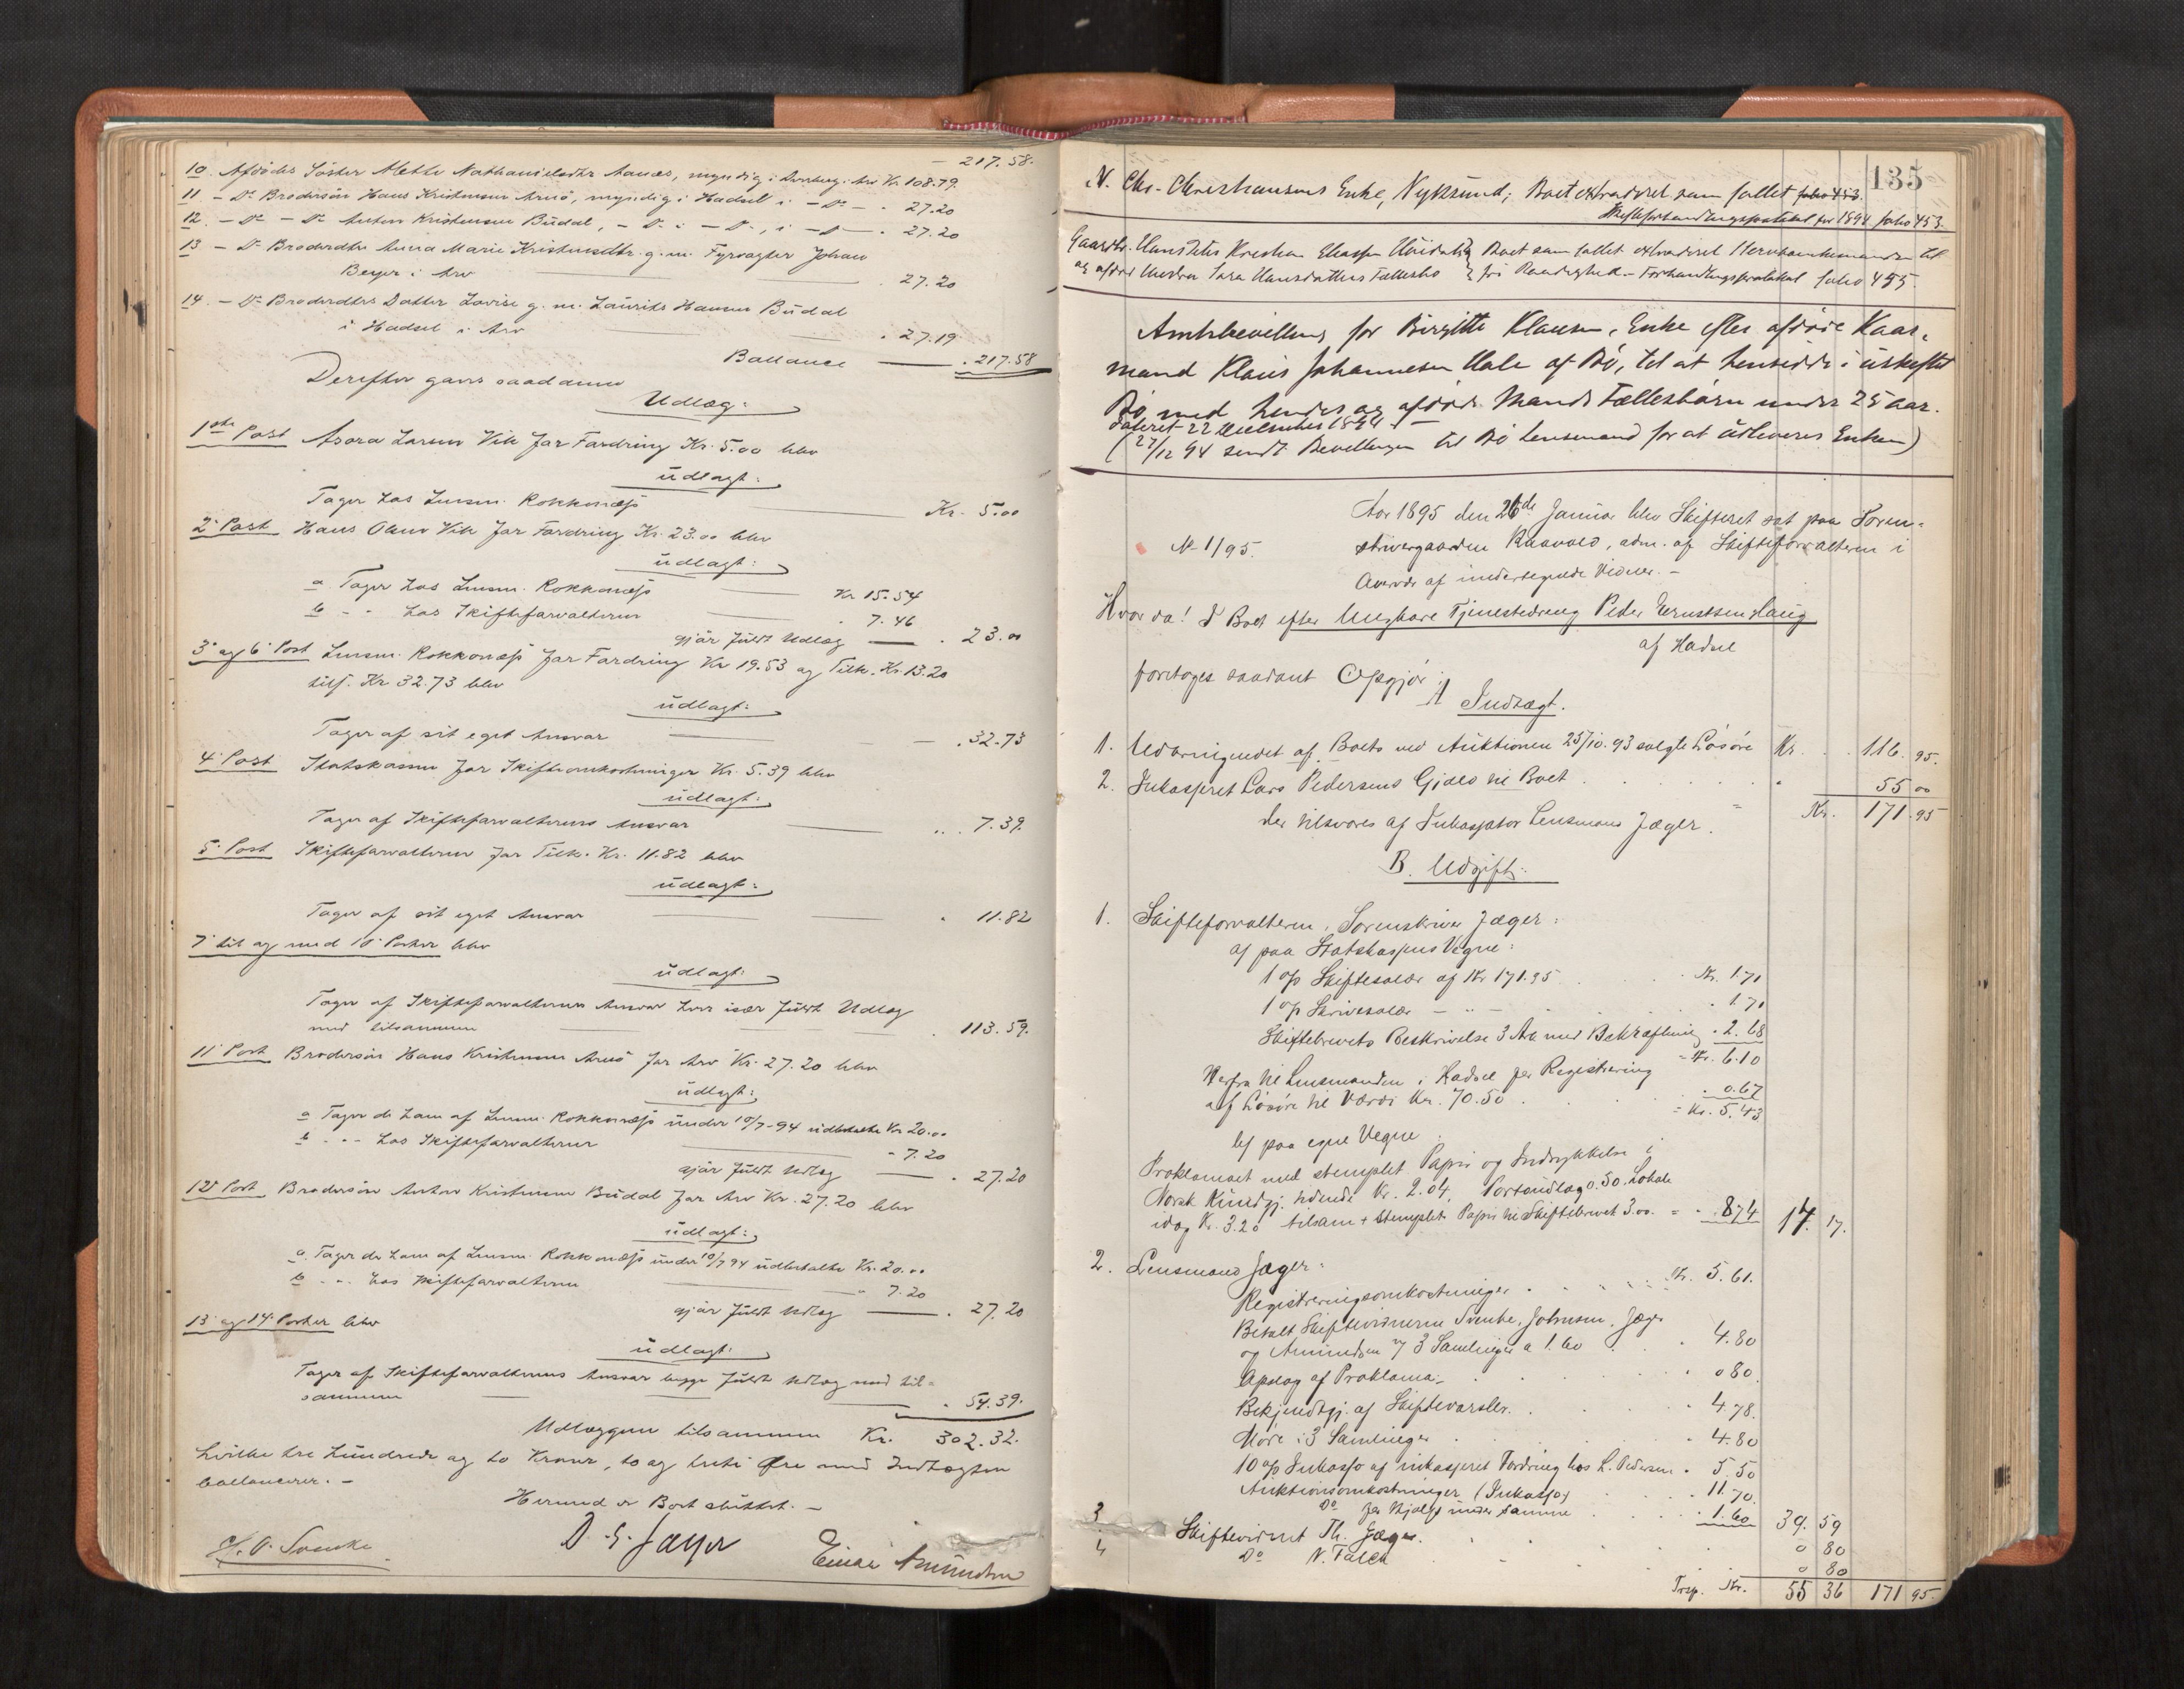 — 217.58.
10. Afdødes Søster Mette Nathanielsdtr Aanæs, myndig i Arv Kr 108.79.
11 – Do Brodersøn Hans Kristensen Arnö, myndig i Hadsel i – Do – . 27.20
12. – Do – Do Anton Kristensen Büdal, – Do i – Do –, i – D – . 27.20
13 – Do Broderdtr Anna Marie Kristensdtr. g. m. Fyrvogter Johan
Beyer i Arv . 27.20
14. – Do Broderdtrs Datter Lovise g. m. Laürits Hansen Büdal
i Hadsel i Arv . 27.19
Ballance . 217.58
Derefter gaves saadanne
Udlæg:
1ste Post Asora Larsen Vik for Fordring Kr. 5.00 blev
üdlagt:
Tager hos Lensm. Rokkonæss Kr. 5.00
2' Post Hans Olsen Vik for Fordring Kr. 23.00 blev
üdlagt:
a Tager hos Lensm. Rokkonæss Kr 15.54
b - - hos Skifteforvalteren . 7.46
gjør füldt Udlæg . 23.00
3' og 6' Post Lensm. Rokkonæss for Fordring Kr 19.53 og Tilk. Kr. 13.20
tils. Kr 32.73 blev
üdlagt:
Tager af sit eget Ansvar . 32.73
4' Post Statskassen for Skifteomkostninger Kr. 5.39 blev
üdlagt:
Tager af Skifteforvalterens Ansvar . 7.39.
5' Post Skifteforvalteren for Tilk. Kr. 11.82 blev
üdlagt:
Tager af sit eget Ansvar . 11.82
7' til og med 10' Poster blev
üdlagt:
Tager af Skifteforvalterens Ansvar hver især füldt Udlæg
med tilsammen . 113.59.
11' Post Brodersøn Hans Kristensen Arnö for Arv Kr. 27.20 blev
üdlagt:
a Tager de ham af Lensm. Rokkonæss ünder 10/7-94 üdbetalte Kr 20.00
b - - - hos Skifteforvalteren - 7.20
gjør füldt Udlæg . 27.20
12' Post Brodersøn Anton Kristensen Büdal for Arv Kr. 27.20 blev
üdlagt:
a. Tager de ham af Lensm. Rokkonæss ünder 10/7 94 üdbetalte Kr. 20.00
b - - hos Skifteforvalteren " 7.20
gjør füldt Udlæg . 27.20
13' og 14' Poster blev
üdlagt:
Tager af Skifteforvalterens Ansvar begge füldt Udlæg med til-
sammen . 54.39.
Udlæggene tilsammen Kr. 302.32.
hvilke tre Hündrede og to Kroner, to og treti Øre med Indtægten
ballancerer. –
Hermed er Boet slüttet. –
H. O. Svenke D. S. Jæger Einar Amundsen
135
N. Chr. Christiansens Enke, Nyksund; Boet extraderet som fallet folio 453.
Skifteforhandlingsprotokol for 1894 folio 453.
Gaardbr. Hans Petter Kristian Eliassen og Boet som fallet extraderet til
og afdøde Hustru Sara Hansdatters Fællesbo fri Raadighed. – Forhandlingsprotokol folio 455.
Amtsbevilling for Birgitte Klausen, Enke efter afdøde Kaar-
mand Klaus Johannesen Hale af Bö, til at hensidde i üskiftet
Bo med hendes og afdøde Mands Fællesbörn under 25 Aar.
Dateret 22 December 1894 –
(27/12 94 sendt Bevillingen til Bö Lensmand for at üdleveres Enken)
Aar 1895 den 26de Januar blev Skifteret sat paa Soren-
No 1/95. skrivergaarden Raavold, adm. af Skifteforvalteren i
Overvær af undertegnede Vidner. –
Hvorda! I Boet efter Ungkare Tjenestedreng Peder Ernstsen Haug
af Hadsel
foretoges saadant Opgjör:
A Indtægt.
1. Udbringendet af Boets ved Auktionen 25/10. 93 solgte Lösöre Kr. . . 116. 95.
2. Inkasseret Lars Pedersens Gjæld til Boet . . . . " 55 00
der tilsvares af Inkassator Lensmand Jæger. = Kr. 171. 95
B. Udgift:
1. Skifteforvalteren, Sorenskriver Jæger:
a) paa Statskassens Vegne:
1 o/o Skiftesalær af Kr 171.95 . . Kr. 1.71
1 o/o Skrivesalær – " – . . 1.71
Skiftebrevets Beskrivelse 3 Ark med Bekræftning . 2.68
= Kr. 6.10
Herfra til Lensmanden i Hadsel for Registrering
af Lösöre til Værdi Kr. 70.50 . . 0.67
= Kr. 5.43
b) paa egne Vegne:
Proklamaet med stemplet Papir og Indrykkelse i
Norsk Kündgj. tidende Kr. 2.04, Portoudlæg 0.50. Lokale
idag Kr. 3.20 tilsam + Stemplet Papir til Skiftebrevet 3.00. = . 8.74 14. 17.
2. Lensmand Jæger:
Registreringsomkostninger . . . Kr. 5.61.
Betalt Skiftevidnerne Svenke, Johnsen, Jæger
og Amundsen i 3 Samlinger a 1.60 . . 4.80
Opslag af Proklama – . . 0 80.
Bekjendtgj. af Skiftevarsler. . . 4.78.
Møde i 3 Samlinger . . 4.80
10 o/o Inkasso af inkasseret Fordring hos L. Pedersen . 5.50
Auktionsomkostninger (Inkasso) . . 11.70.
Do for Hjælp ünder samme . . 1.60 39. 59
3 Skiftevidnet Th. Jæger . . 0 80
4 Do N. Falch . . 0 80
Trsp. Kr. 55 36 171 95.